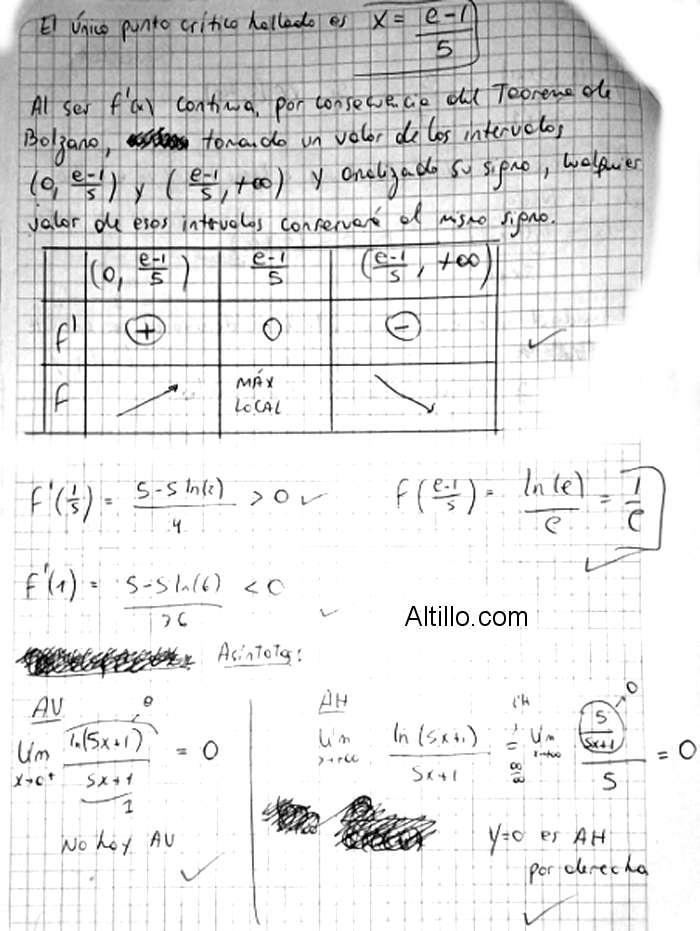 El único punto crítico hallado es x = (e-1)/5
Al ser f'(x) continua, por consecuencia del Teorema de
Bolzano, tomando un valor de los intervalos
(0, (e-1)/5) y ((e-1)/5, +∞) y analizado su signo, cualquier
valor de esos intervalos conservará el mismo signo.
(0, (e-1)/5) (e-1)/5 ((e-1)/5, +∞)
f' + 0 -
f ↗ MÁX LOCAL ↘
f'(1/5) = (5-5 ln(2))/4 > 0 ✓ f((e-1)/5) = ln(e)/e = 1/e
f'(1) = (5-5 ln(6))/36 < 0
Altillo.com
Asíntotas:
AV
lím x→0⁺ ln(5x+1)/(5x+1) = 0
0
1
No hay AV
AH
lím x→+∞ ln(5x+1)/(5x+1) = L'H ∞/∞ lím x→+∞ (5/(5x+1))/5 = 0
0
y=0 es AH
por derecha